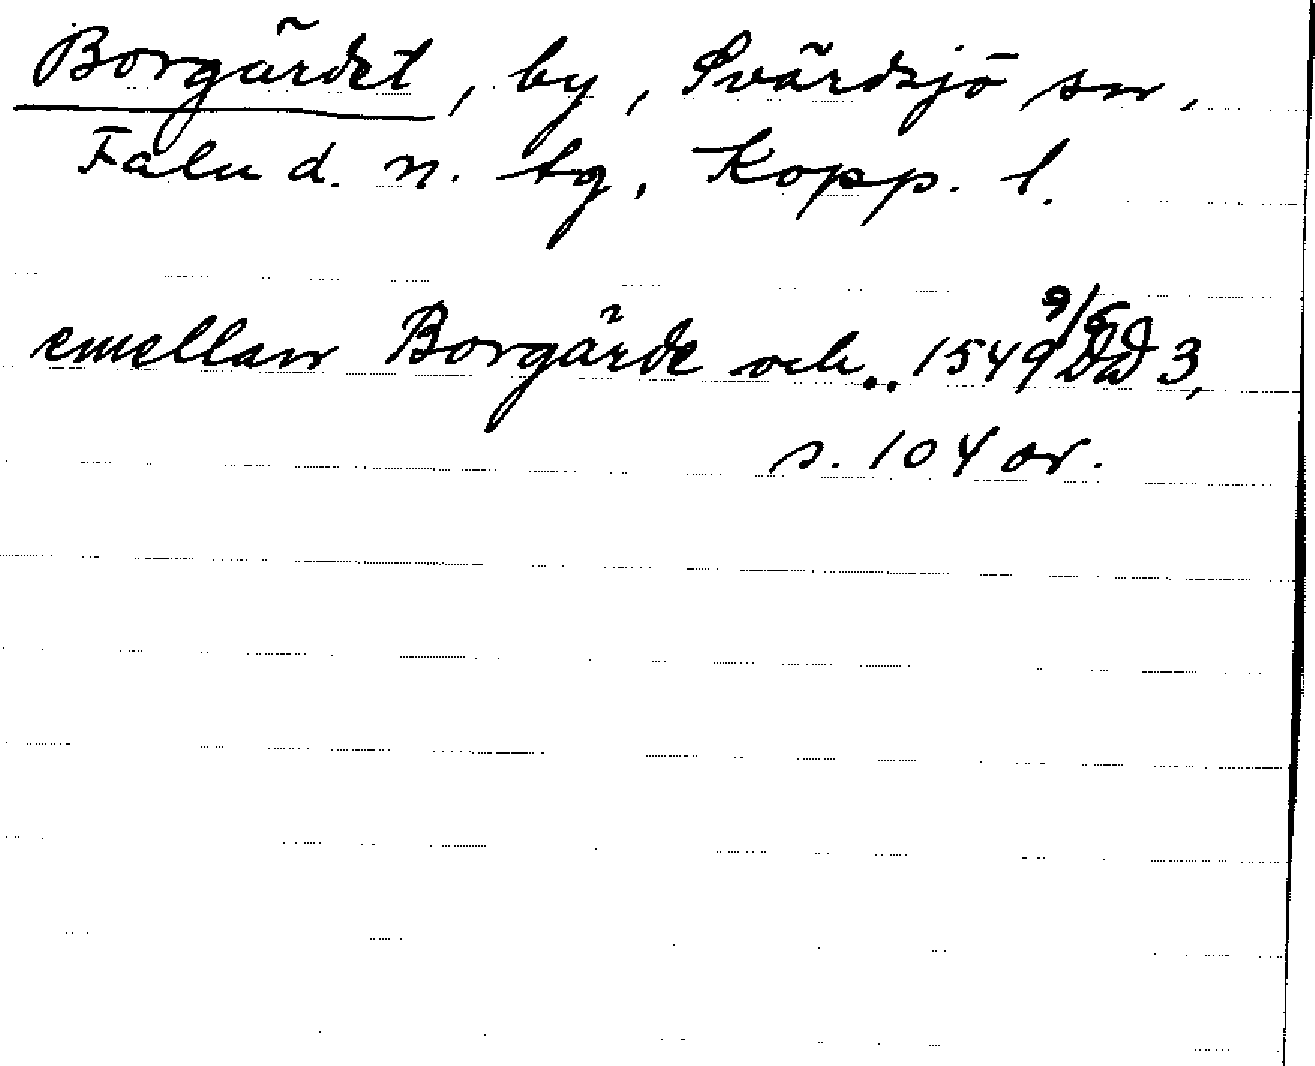 Borgärdet, by, Svärdsjö sn,
Falu d. n. tg, Kopp. l.
emellan Borgärde och.. 1549 9/5 DD 3,
s. 104 or.